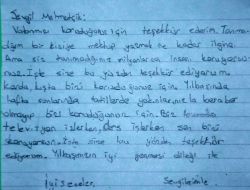 Sevgili Mehmetçik:
Vatanımızı koruduğunuz için teşekkür ederim. Tanıma-
dığım bir kişiye mektup yazmak ne kadar ilginç.
Ama siz tanımadığınız milyonlarca insanı koruyorsu-
nuz. İşte size bu yüzden teşekkür ediyorum.
Karda, kışta bizi koruduğunuz için. Yılbaşında
hafta sonlarında tatillerde yakınlarınızla beraber
olmayıp bizi koruduğunuz için. Biz
televizyon izlerken, Ders işlerken sen bizi
koruyorsun. İşte size bu yüzden teşekkür
ediyorum. Yılbaşınızın iyi geçmesi dileği ile
İyi seneler. Sevgilerimle